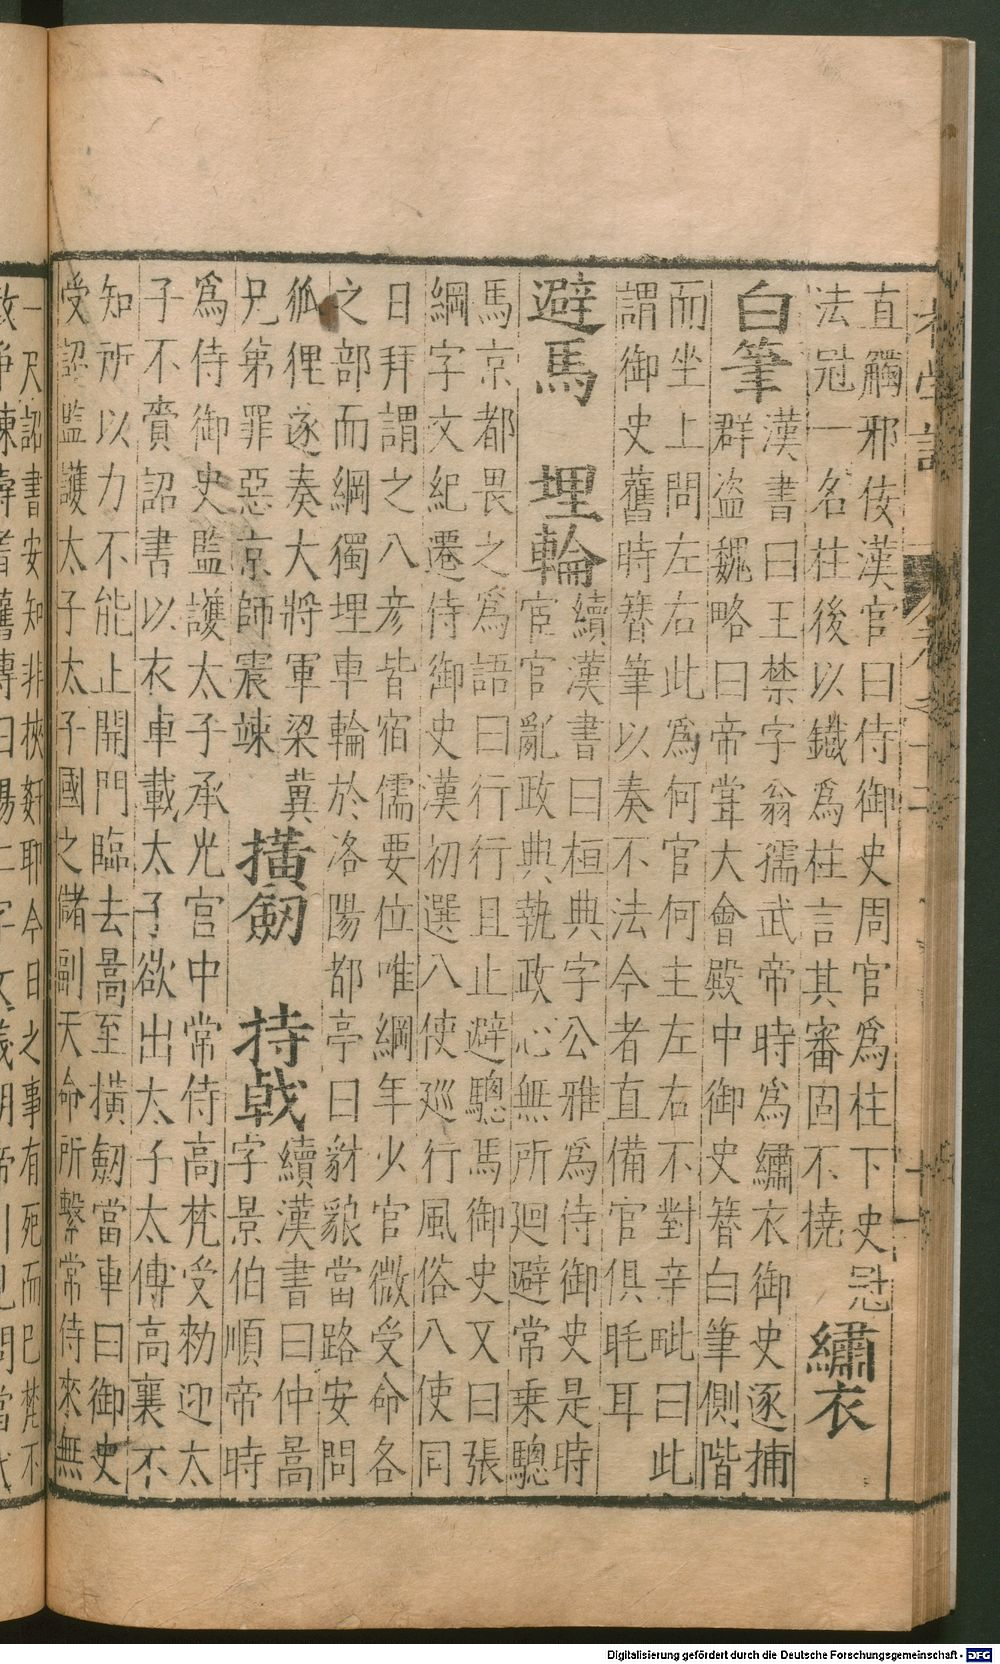 直觸邪佞漢官曰侍御史周官爲柱下史冠
法冠一名柱後以鐵爲柱言其審固不撓
繡衣
漢書曰王禁字翁孺武帝時爲繡衣御史逐捕
群盜
白筆
魏略曰帝甞大會殿中御史簪白筆側階
而坐上問左右此爲何官何主左右不對辛毗曰此
謂御史舊時簪筆以奏不法今者直備官俱眊耳
避馬 埋輪
續漢書曰桓典字公雅爲侍御史是時
宦官亂政典執政心無所迴避常乗驄
馬京都畏之爲語曰行行且止避驄馬御史又曰張
綱字文紀遷侍御史漢初選八使巡行風俗八使同
日拜謂之八彦皆宿儒要位唯綱年少官微受命各
之部而綱獨埋車輪於洛陽都亭曰豺狼當路安問
狐狸遂奏大將軍梁冀
兄第罪惡京師震竦
橫劒 持戟
續漢書曰仲暠
字景伯順帝時
爲侍御史監護太子承光宫中常侍高梵受勑迎太
子不賫詔書以衣車載太子欲出太子太傅高襄不
知所以力不能止開門臨去暠至橫劒當車曰御史
受詔監護太子太子國之儲副天命所繫常侍來無
一尺詔書安知非挾姧耶今日之事有死而已梵不